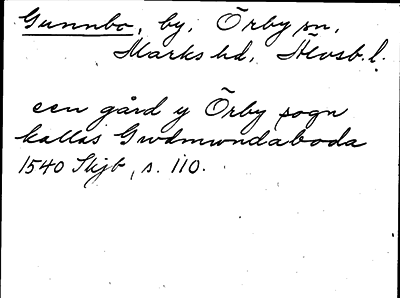 Gunnbo, by, Örby sn,
Marks hd, Älvsb. l.
een gård y Örby sogn
kallas Gwdmwndaboda
1540 Skjb, s. 110.